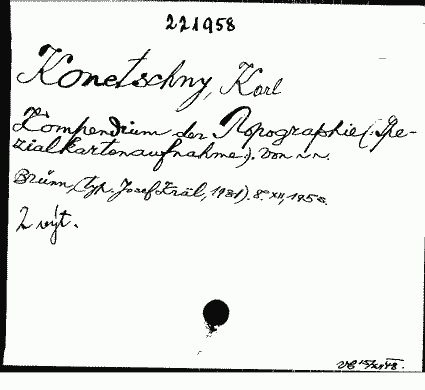 221958
Konetschny, Karl
Kompendium der Topographie (Spe-
zialkartenaufnahme). Von n.n.
Brünn, (typ. Josef Král, 1931). 8. XII,
2 výt.